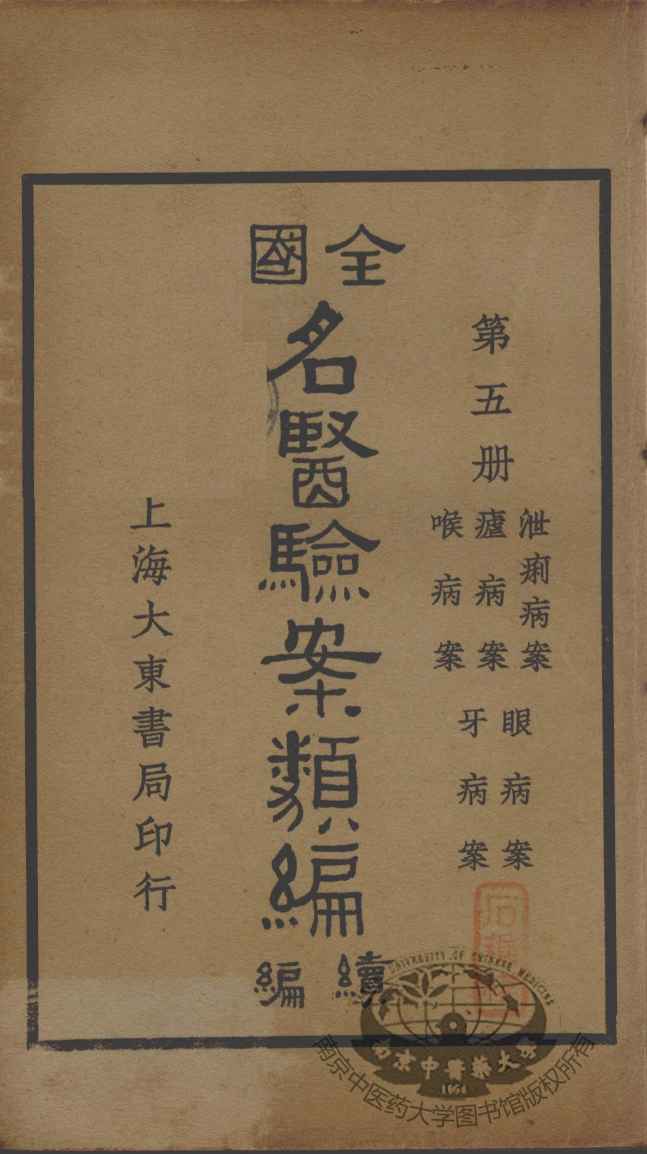 第五册
泄痢病案
瘧病案
喉病案
眼病案
牙病案
全國
名醫驗案類編
續編
上海大東書局印行
UNIVERSITY OF CHINESE MEDICINE
南京中醫藥大學
1954
南京中医药大学图书馆版权所有